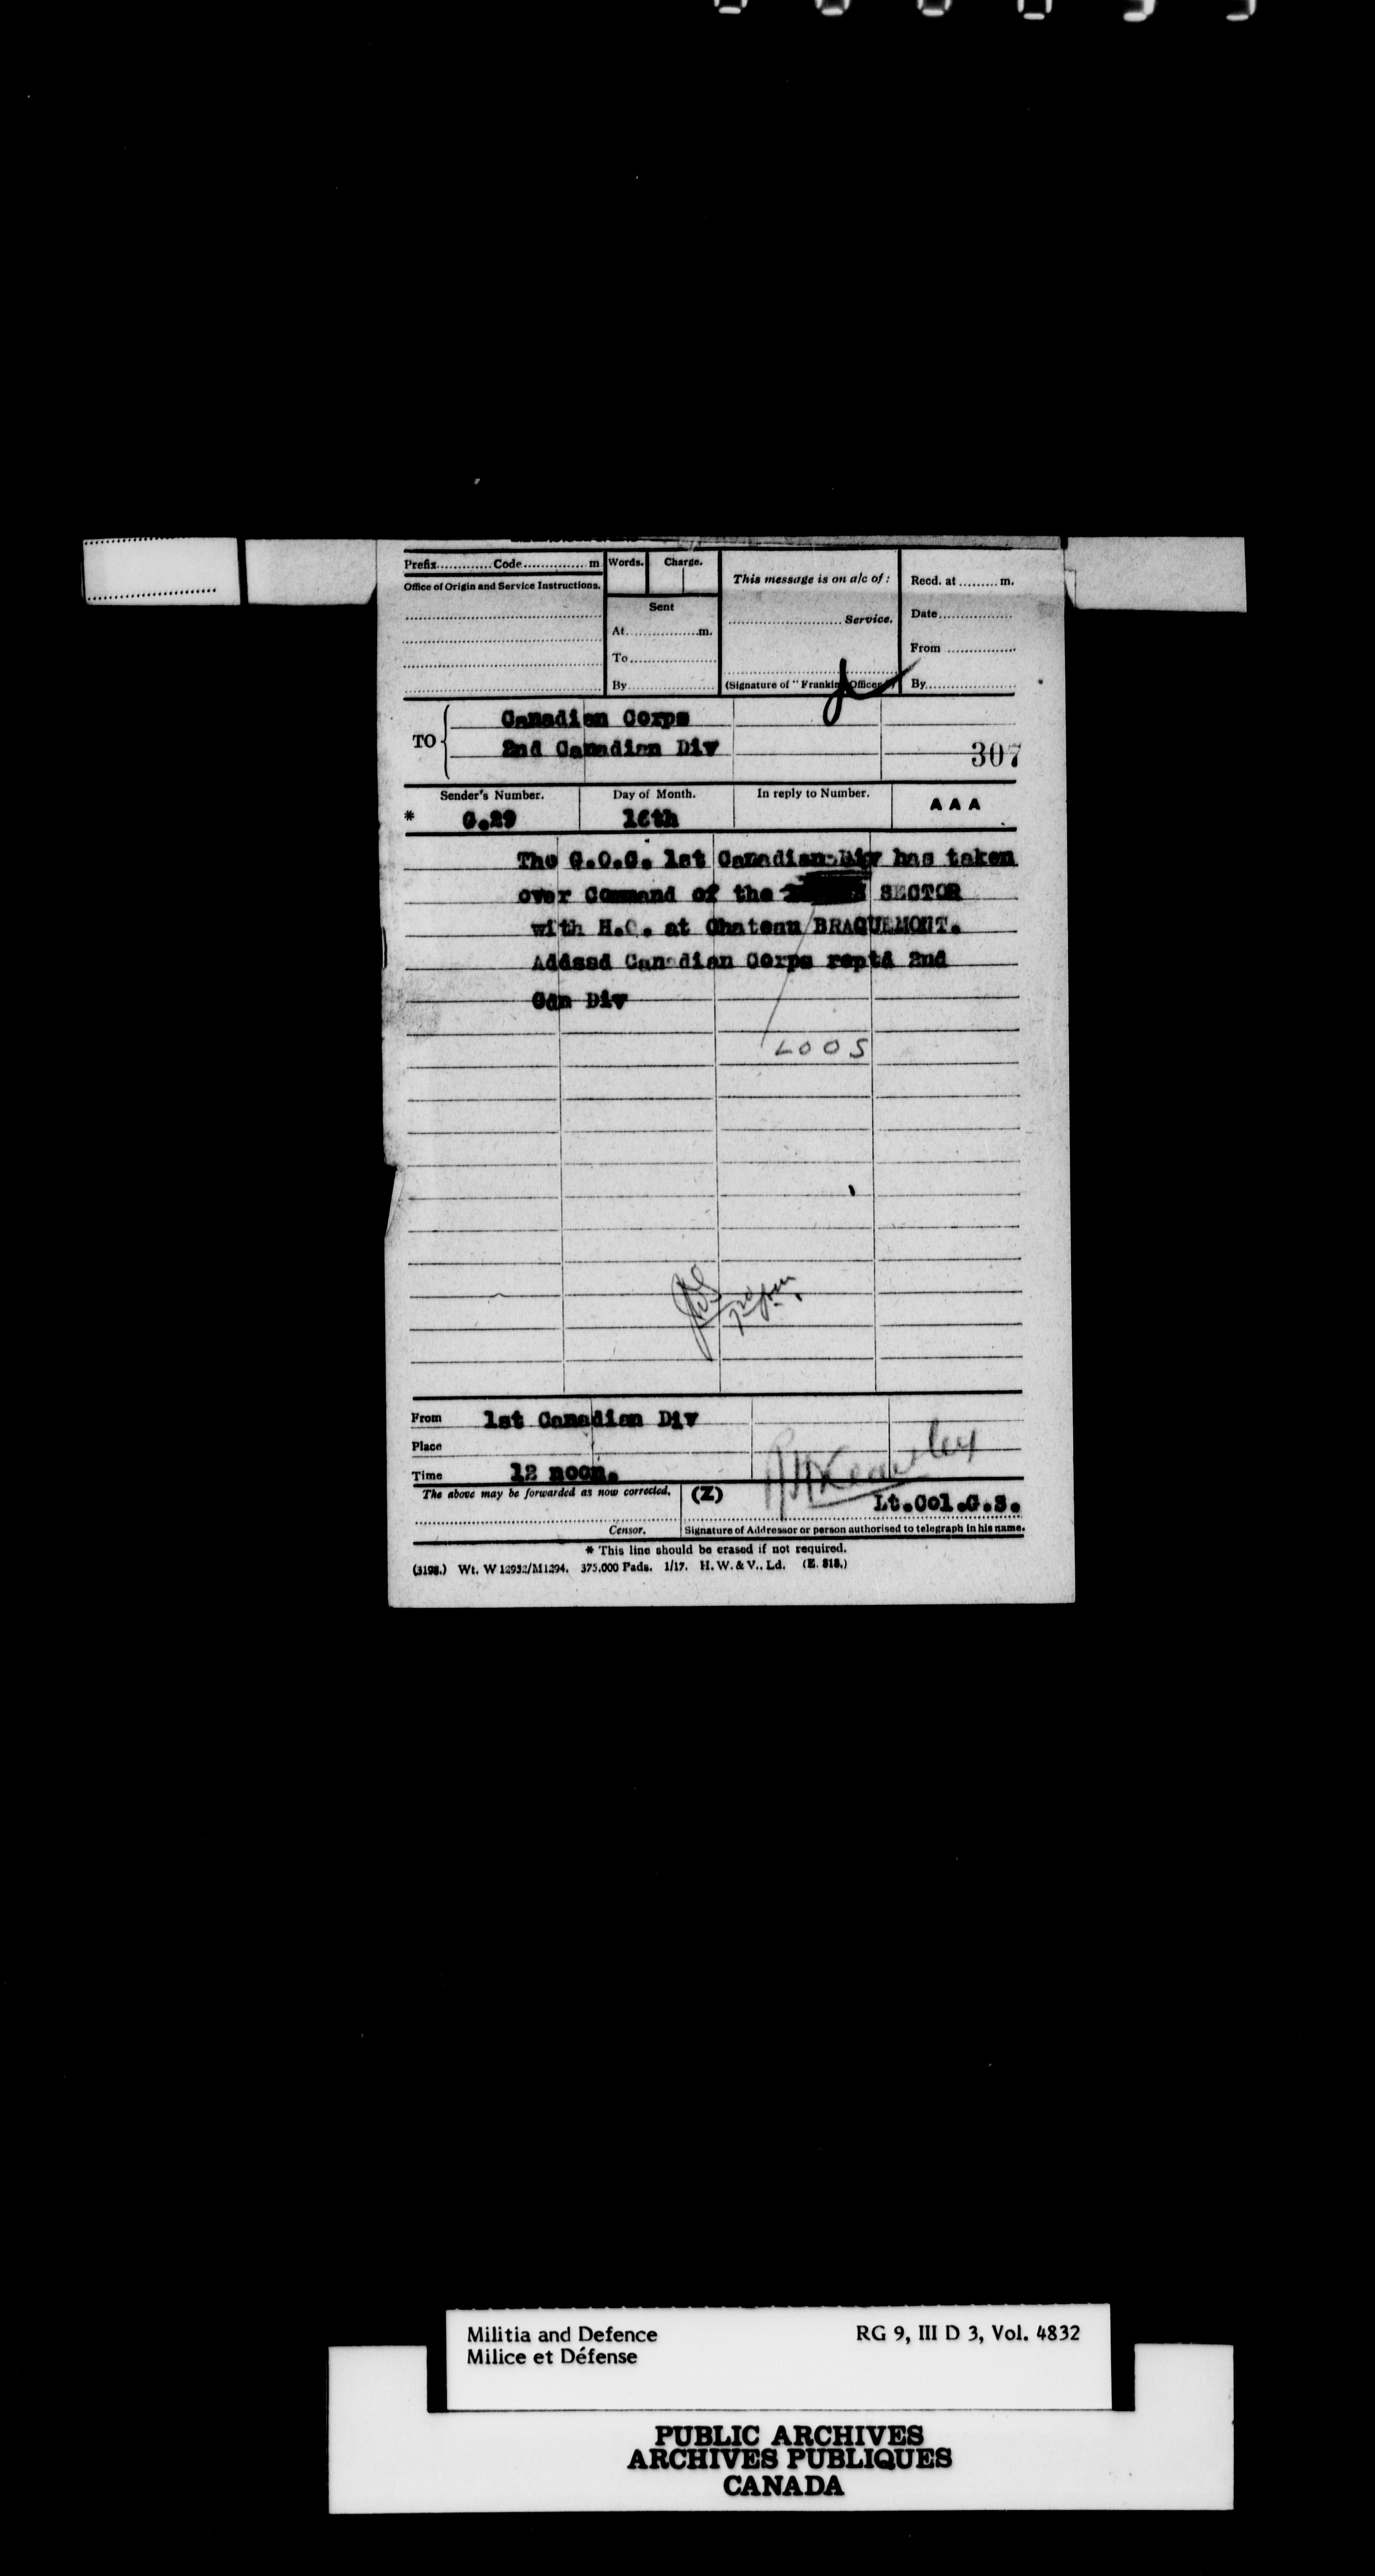 Prefix............Code...............m
Words.
Charge.
This message is on a/c of:
Recd. at.........m.
Office of Origin and Service Instructions.
Sent
At..................m.
To......................
By......................
........................Service.
(Signature of "Franking Officer.")
Date................
From ...............
By....................
TO
Canadian Corps
2nd Canadian Div
307
Sender's Number.
Day of Month.
In reply to Number.
AAA
* G.29
16th
The G.O.C. 1st Canadian Div has taken
over Command of the SECTOR
with H.Q. at Chateau BRAQUEMONT.
Addssd Canadian Corps reptd 2nd
Cdn Div
LOOS
From 1st Canadian Div
Place
Time 12 noon.
The above may be forwarded as now corrected.
(Z)
Lt.Col.G.S.
Censor.
Signature of Addressor or person authorised to telegraph in his name.
* This line should be erased if not required.
(3198.) Wt. W 12952/M1294. 375,000 Pads. 1/17. H. W. & V., Ld. (E. 818.)
Militia and Defence
Milice et Défense
RG 9, III D 3, Vol. 4832
PUBLIC ARCHIVES
ARCHIVES PUBLIQUES
CANADA